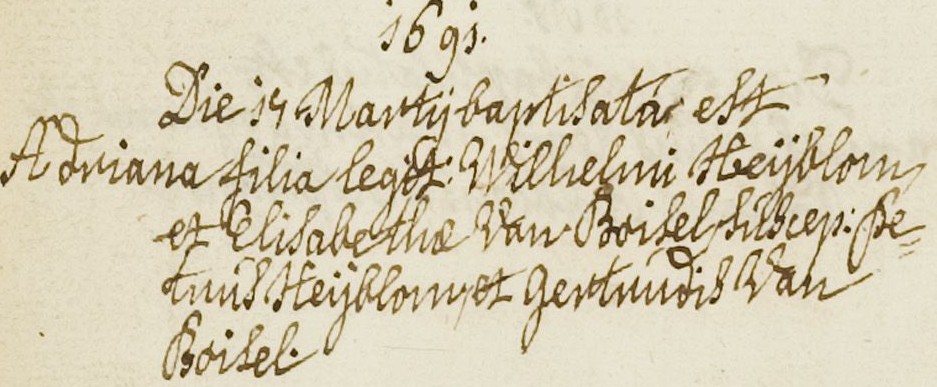 1691.
Die 17 Martij baptisata est
Adriana filia legit: Wilhelmi Heijblom,
et Elisabethæ Van Boisel, suscep: Pe=
trus Heijblom, et Gertrudis Van
Boisel.